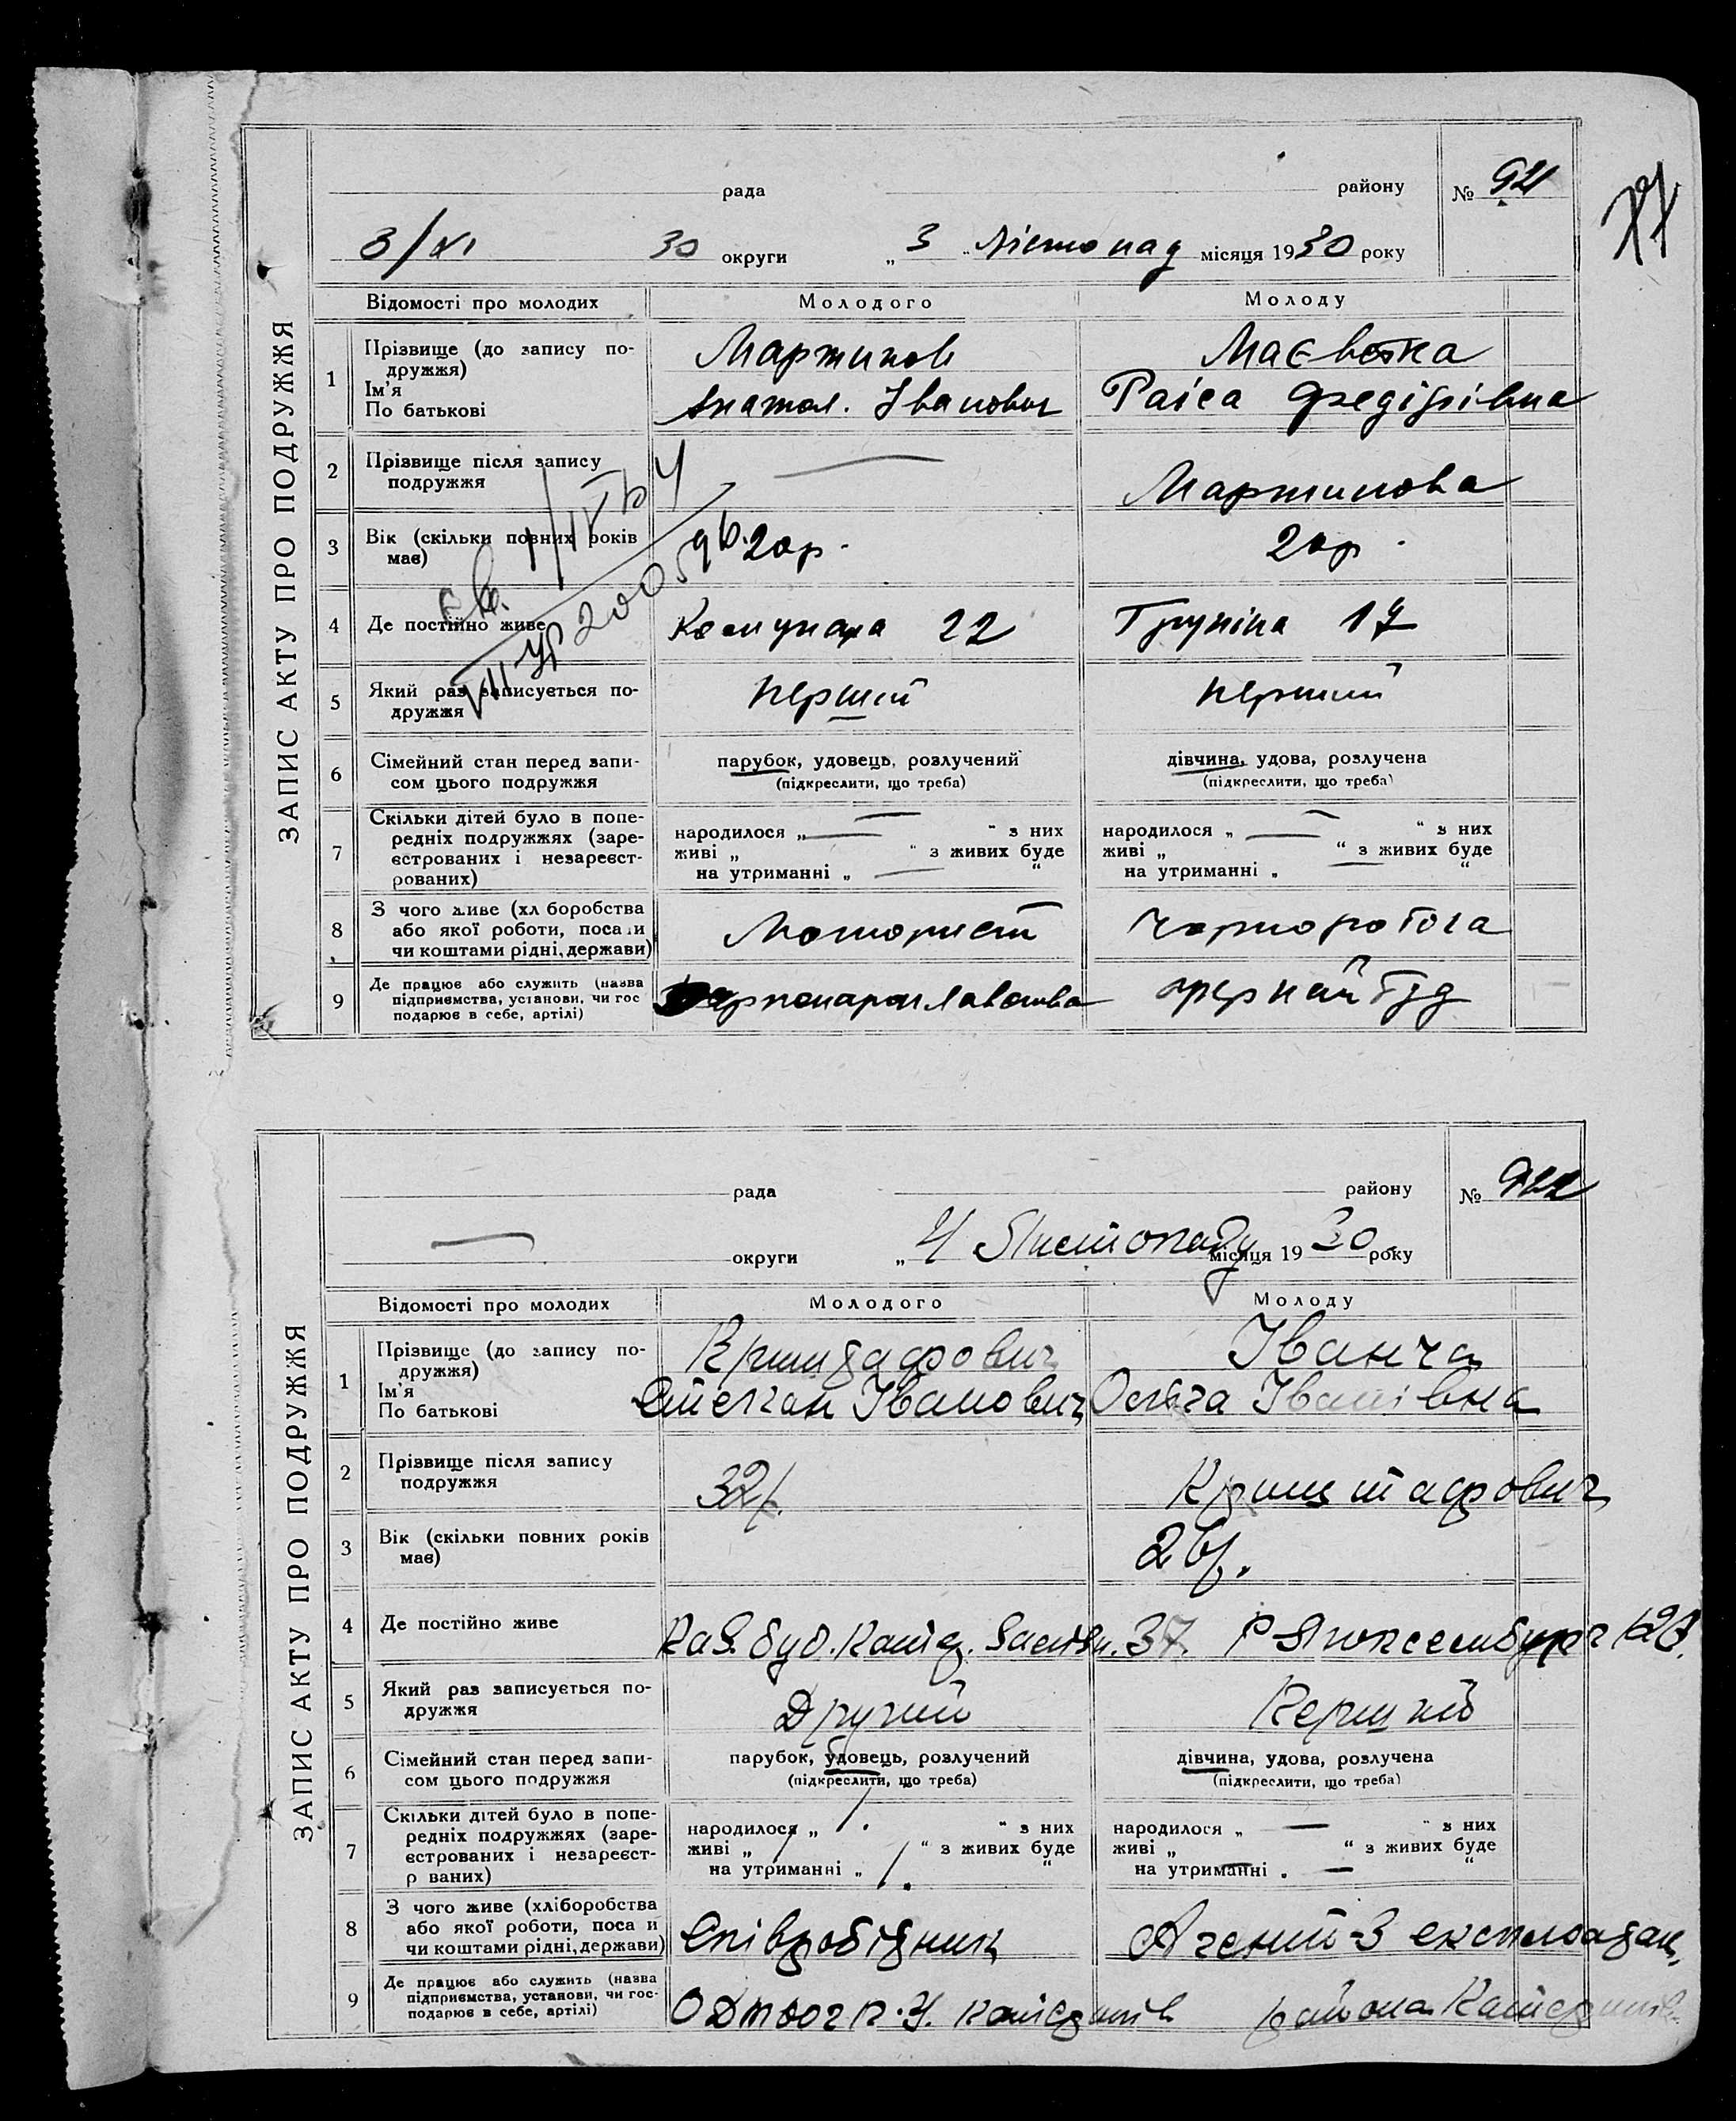 ЗАПИС АКТУ ПРО ПОДРУЖЖЯ
рада району № 921
3/XI 30 округи „ 3 „ Лістопад місяця 1930 року
Відомості про молодих Молодого Молоду
1 Прізвище (до запису по-
дружжя)
Ім'я
По батькові
Мартинов
Анатол. Іванович
Маєвська
Раіса Федірівна
2 Прізвище після запису
подружжя
Мартинова
3 Вік (скільки повних років
має)
20р.
20р.
4 Де постійно живе
Комунара 22
17
5 Який раз записується по-
дружжя
перший
перший
6 Сімейний стан перед запи-
сом цього подружжя
парубок, удовець, розлучений
(підкреслити, що треба)
дівчина, удова, розлучена
(підкреслити, що треба)
7 Скільки дітей було в попе-
редніх подружжях (заре-
єстрованих і незареєст-
рованих)
народилося „ — “ з них
живі „ “ з живих буде
на утриманні „ — “
народилося „ — “ з них
живі „ “ з живих буде
на утриманні „ “
8 З чого живе (хл боробства
або якої роботи, поса и
чи коштами рідні, держави)
Моторист
Чорноробоча
9 Де працює або служить (назва
підприємства, установи, чи гос
подарює в себе, артілі)
ЗАПИС АКТУ ПРО ПОДРУЖЖЯ
рада району № 922
— округи „ 4 Листопаду місяця 1930 року
Відомості про молодих Молодого Молоду
1 Прізвище (до запису по-
дружжя)
Ім'я
По батькові
Криштафович
Степан Іванович
Іванча
Ольга Іванівна
2 Прізвище після запису
подружжя
32р.
Криштафович
3 Вік (скільки повних років
має)
26р.
4 Де постійно живе
37. Р Люксембург
5 Який раз записується по-
дружжя
Другий
Перший
6 Сімейний стан перед запи-
сом цього подружжя
парубок, удовець, розлучений
(підкреслити, що треба)
дівчина, удова, розлучена
(підкреслити, що треба)
7 Скільки дітей було в попе-
редніх подружжях (заре-
єстрованих і незареєст-
р ваних)
народилося „ “ з них
живі „ “ з живих буде
на утриманні „ “
народилося „ — “ з них
живі „ “ з живих буде
на утриманні „ — “
8 З чого живе (хліборобства
або якої роботи, поса и
чи коштами рідні, держави)
Співробітник
Агент-3 експлоатац.
9 Де працює або служить (назва
підприємства, установи, чи гос-
подарює в себе, артілі)
района